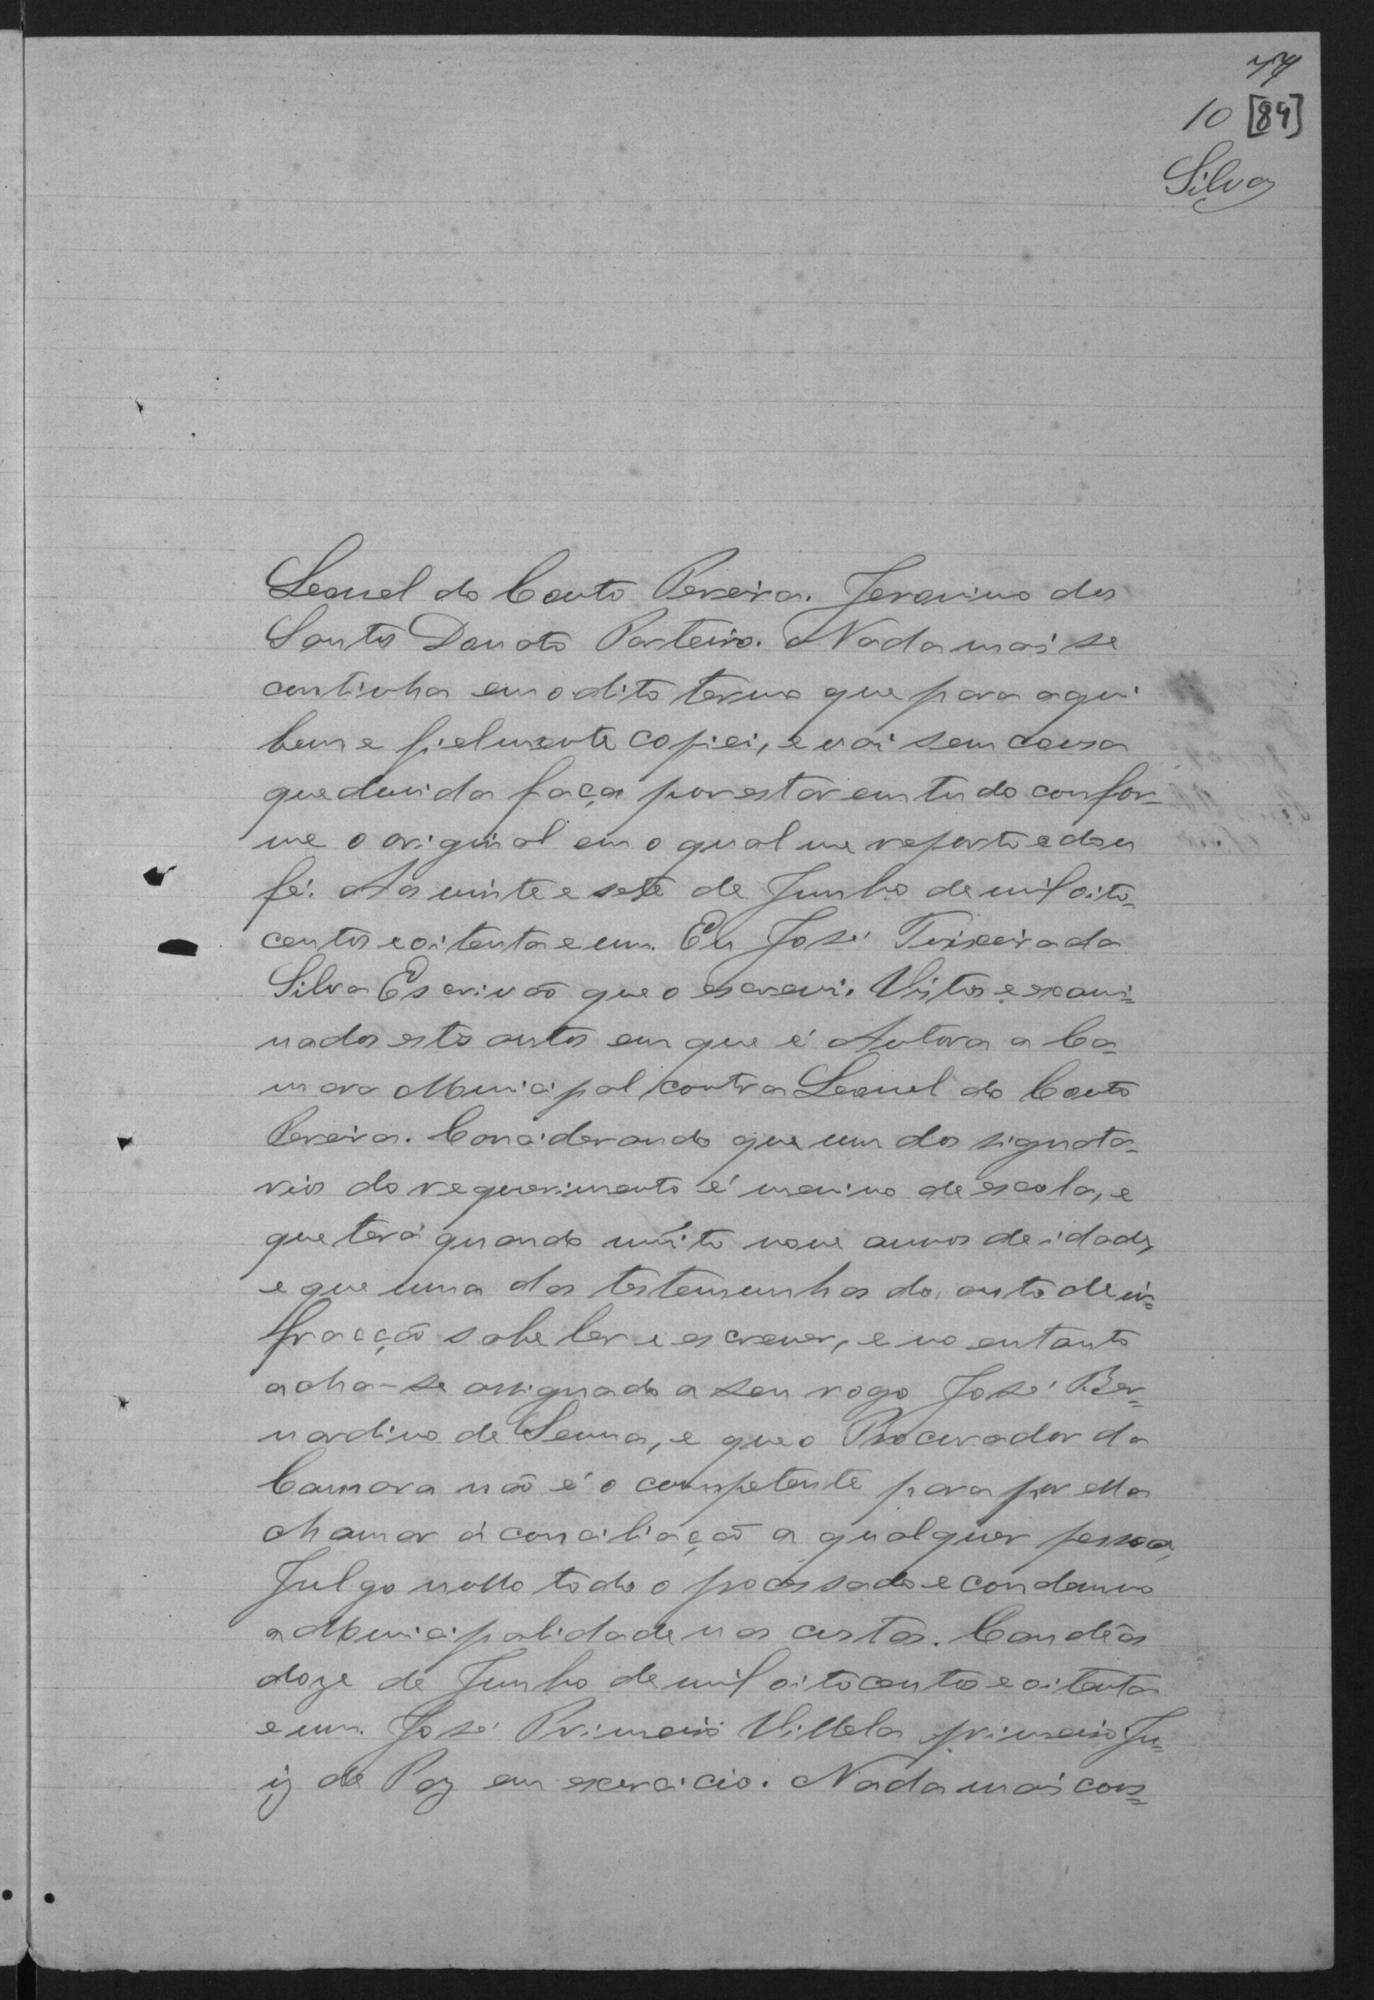 77
10 [84]
Silva
Leonel do Couto Pereira. Jeronimo dos
Santos Donato Porteiro. Nada mais se
continha em o dito termo que para aqui
bem e fielmente copiei, e vai sem cousa
que duvida faça por estar em tudo confor-
me o original em o qual me reporto e dou
fé. Aos vinte e sete de Junho de mil oito-
centos e oitenta e um. Eu José Teixeira da
Silva Escrivão que o escrevi. Vistos e exami-
nados estes autos em que é Autora a Ca-
mara Municipal contra Leonel do Couto
Pereira. Considerando que um dos signata-
rios do requerimento é menino de escola, e
que terá quando muito nove annos de idade,
e que uma das testemunhas do auto de in-
fracção sabe ler e escrever, e no entanto
acha-se assignado a seu rogo José Ber-
nardino de Senna, e que o Procurador da
Camara não é o competente para por ella
chamar á conciliação a qualquer pessoa,
Julgo nullo todo o processado e condemno
a Municipalidade nas custas. Candêas
doze de Junho de mil oitocentos e oitenta
e um. José Primeiro Villela primeiro Ju-
iz de Paz em exercicio. Nada mais con-